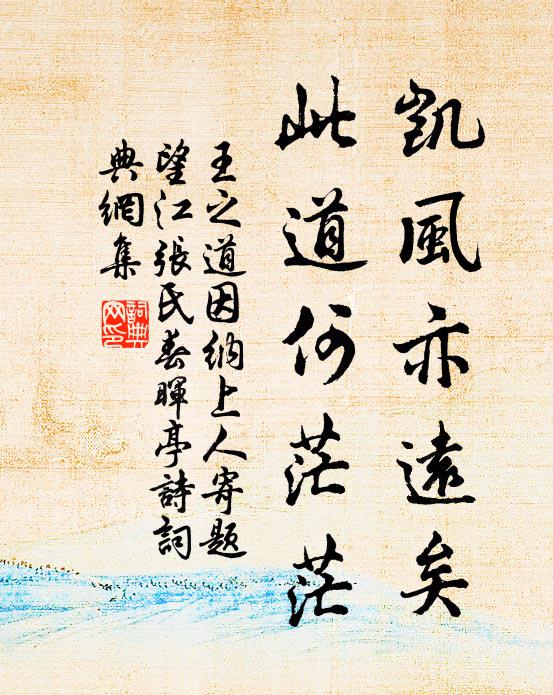 凱風亦遠矣
此道何茫茫
王之道因納上人寄題
望江張氏春暉亭詩詞
典網集
詞典
网印